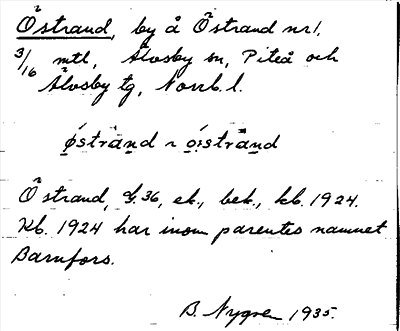 Östrand, by å Östrand nr 1,
3/16 mtl, Älvsby sn, Piteå och
Älvsby tg, Norrb. l.
östrånd ~ o:strånd
Östrand, 36, ek., bek., kb. 1924.
Kb. 1924 har inom parentes namnet
Barnfors.
B. Nygren 1935.